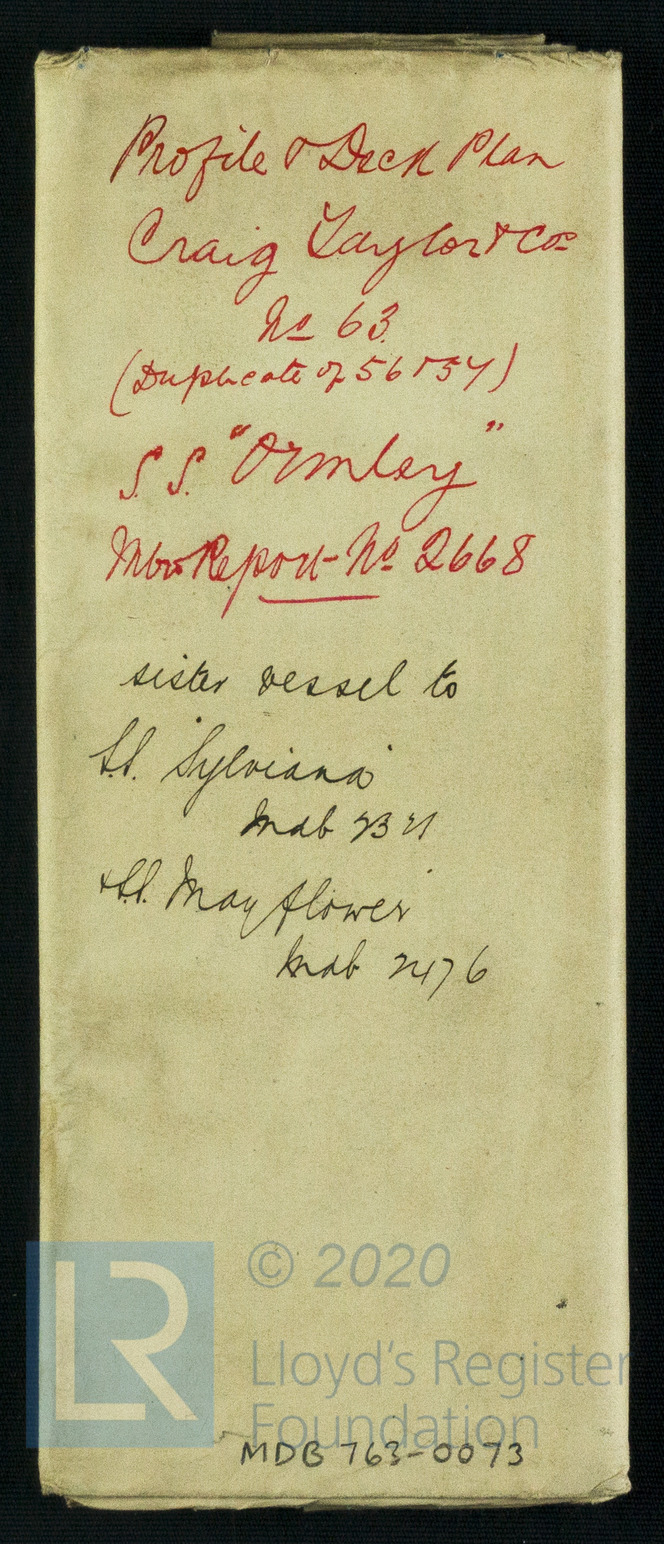 Profile & Deck Plan
Craig Taylor & Cos
No 63
(Duplicate of 56 & 57)
S.S. "Ormley"
Mbro Report No 2668
sister vessel to
S.S. 'Sylviana'
Mdb
& S.S. 'Mayflower'
Mdb 2476
© 2020
LR
Lloyd's Register
Foundation
MDB 763-0073